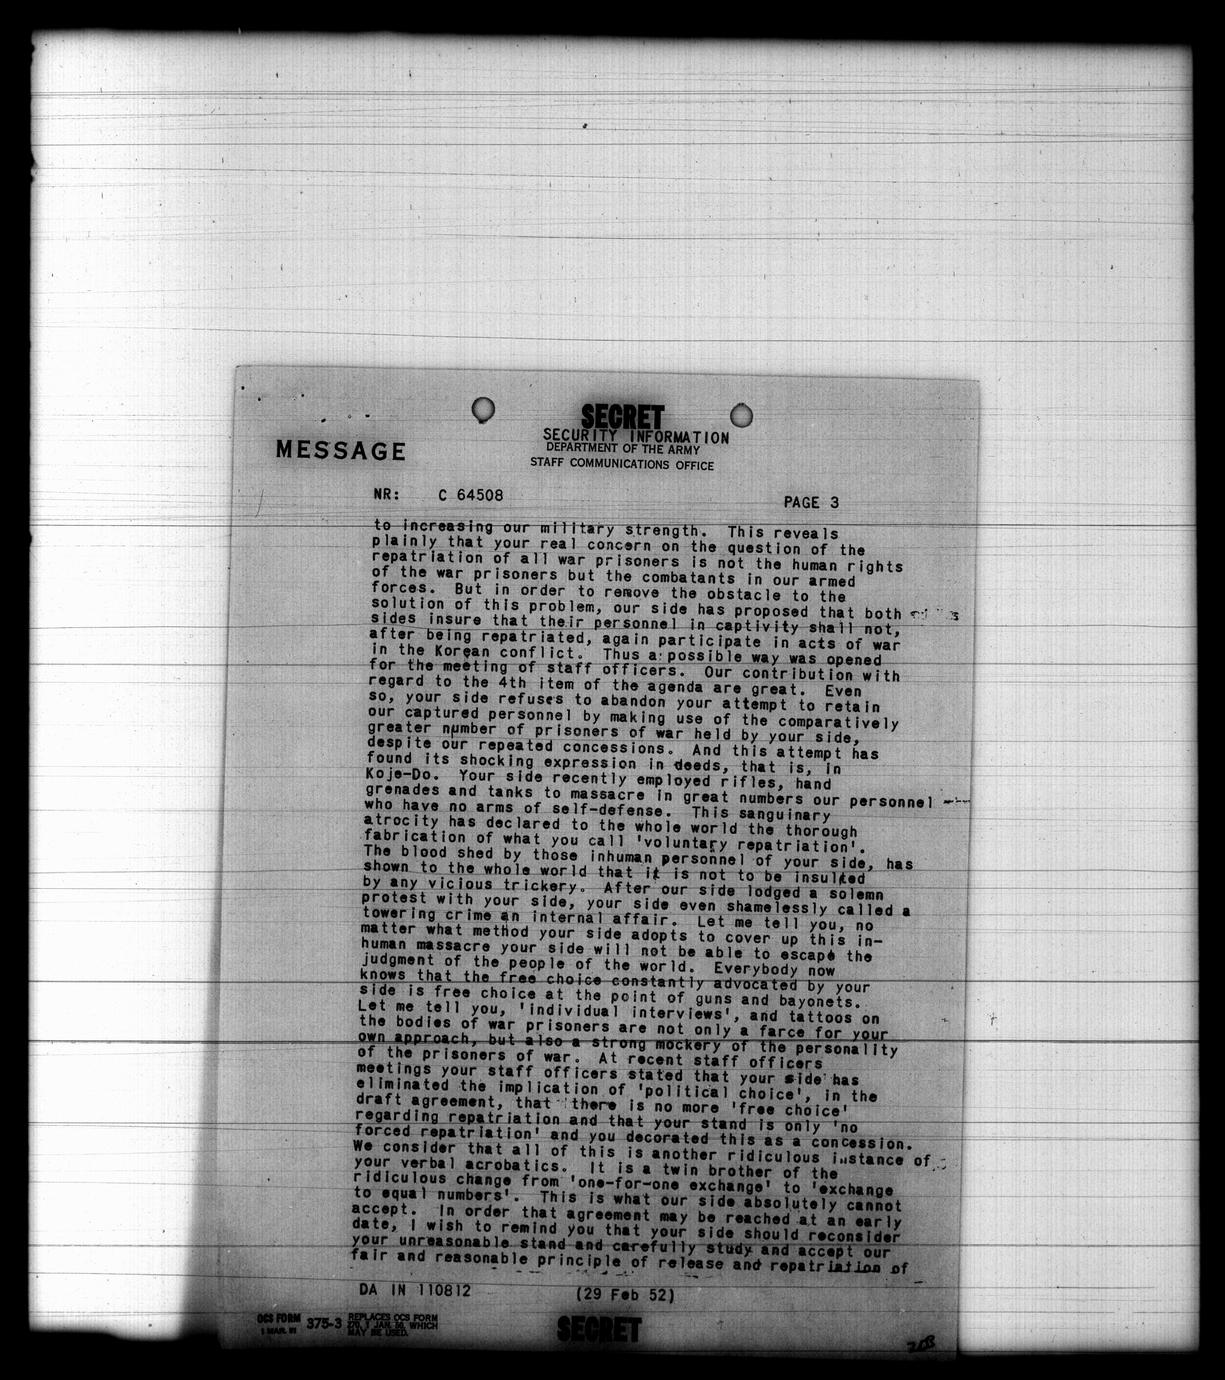 SECRET
SECURITY INFORMATION
DEPARTMENT OF THE ARMY
STAFF COMMUNICATIONS OFFICE
MESSAGE
NR: C 64508 PAGE 3
to increasing our military strength. This reveals
plainly that your real concern on the question of the
repatriation of all war prisoners is not the human rights
of the war prisoners but the combatants in our armed
forces. But in order to remove the obstacle to the
solution of this problem, our side has proposed that both
sides insure that their personnel in captivity shall not,
after being repatriated, again participate in acts of war
in the Korean conflict. Thus a possible way was opened
for the meeting of staff officers. Our contribution with
regard to the 4th item of the agenda are great. Even
so, your side refuses to abandon your attempt to retain
our captured personnel by making use of the comparatively
greater number of prisoners of war held by your side,
despite our repeated concessions. And this attempt has
found its shocking expression in deeds, that is, in
Koje-Do. Your side recently employed rifles, hand
grenades and tanks to massacre in great numbers our personnel
who have no arms of self-defense. This sanguinary
atrocity has declared to the whole world the thorough
fabrication of what you call 'voluntary repatriation'.
The blood shed by those inhuman personnel of your side, has
shown to the whole world that it is not to be insulted
by any vicious trickery. After our side lodged a solemn
protest with your side, your side even shamelessly called a
towering crime an internal affair. Let me tell you, no
matter what method your side adopts to cover up this in-
human massacre your side will not be able to escape the
judgment of the people of the world. Everybody now
knows that the free choice constantly advocated by your
side is free choice at the point of guns and bayonets.
Let me tell you, 'individual interviews', and tattoos on
the bodies of war prisoners are not only a farce for your
own approach, but also a strong mockery of the personality
of the prisoners of war. At recent staff officers
meetings your staff officers stated that your side has
eliminated the implication of 'political choice', in the
draft agreement, that there is no more 'free choice'
regarding repatriation and that your stand is only 'no
forced repatriation' and you decorated this as a concession.
We consider that all of this is another ridiculous instance of
your verbal acrobatics. It is a twin brother of the
ridiculous change from 'one-for-one exchange' to 'exchange
to equal numbers'. This is what our side absolutely cannot
accept. In order that agreement may be reached at an early
date, I wish to remind you that your side should reconsider
your unreasonable stand and carefully study and accept our
fair and reasonable principle of release and repatriation of
DA IN 110812 (29 Feb 52)
OCS FORM
1 MAR. 51
375-3
REPLACES OCS FORM
1 JAN. 50, WHICH
MAY BE USED.
SECRET